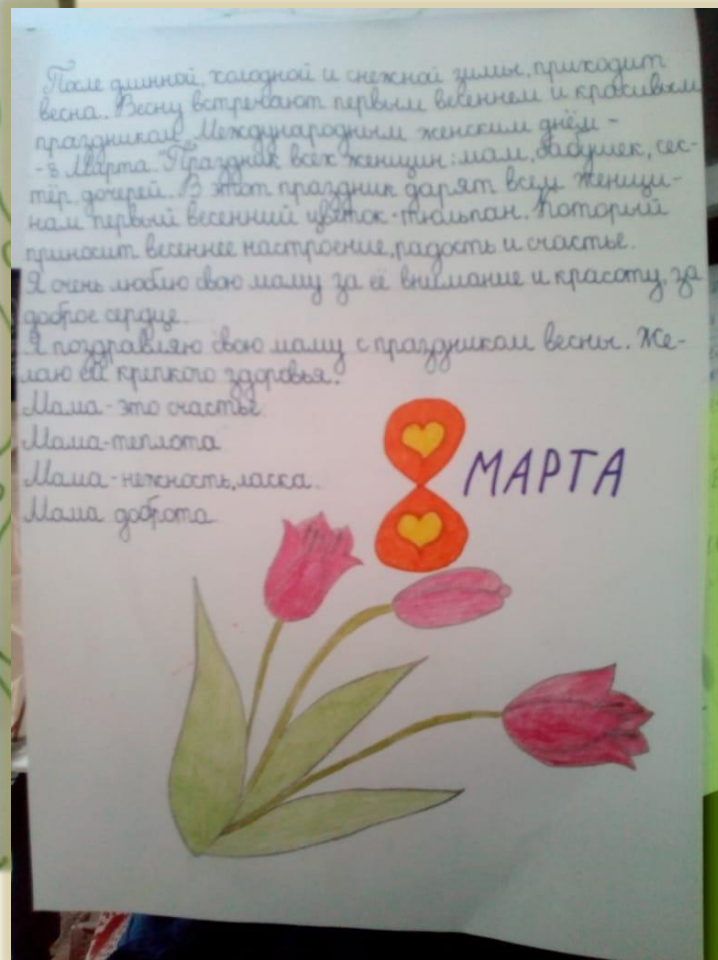 После длинной, холодной и снежной зимы, приходит
весна. Весну встречают первым весеннем и красивым
праздником Международным женским днём -
- 8 Марта. Праздник всех женщин: мам, бабушек, сес-
тёр, дочерей. В этот праздник дарят всем женщи-
нам первый весенний цветок-тюльпан. Который
приносит весеннее настроение, радость и счастье.
Я очень люблю свою маму за её внимание и красоту, за
доброе сердце.
Я поздравляю свою маму с праздником весны. Же-
лаю ей крепкого здоровья.
Мама - это счастье.
Мама - теплота
Мама - нежность, ласка.
Мама доброта
8 МАРТА